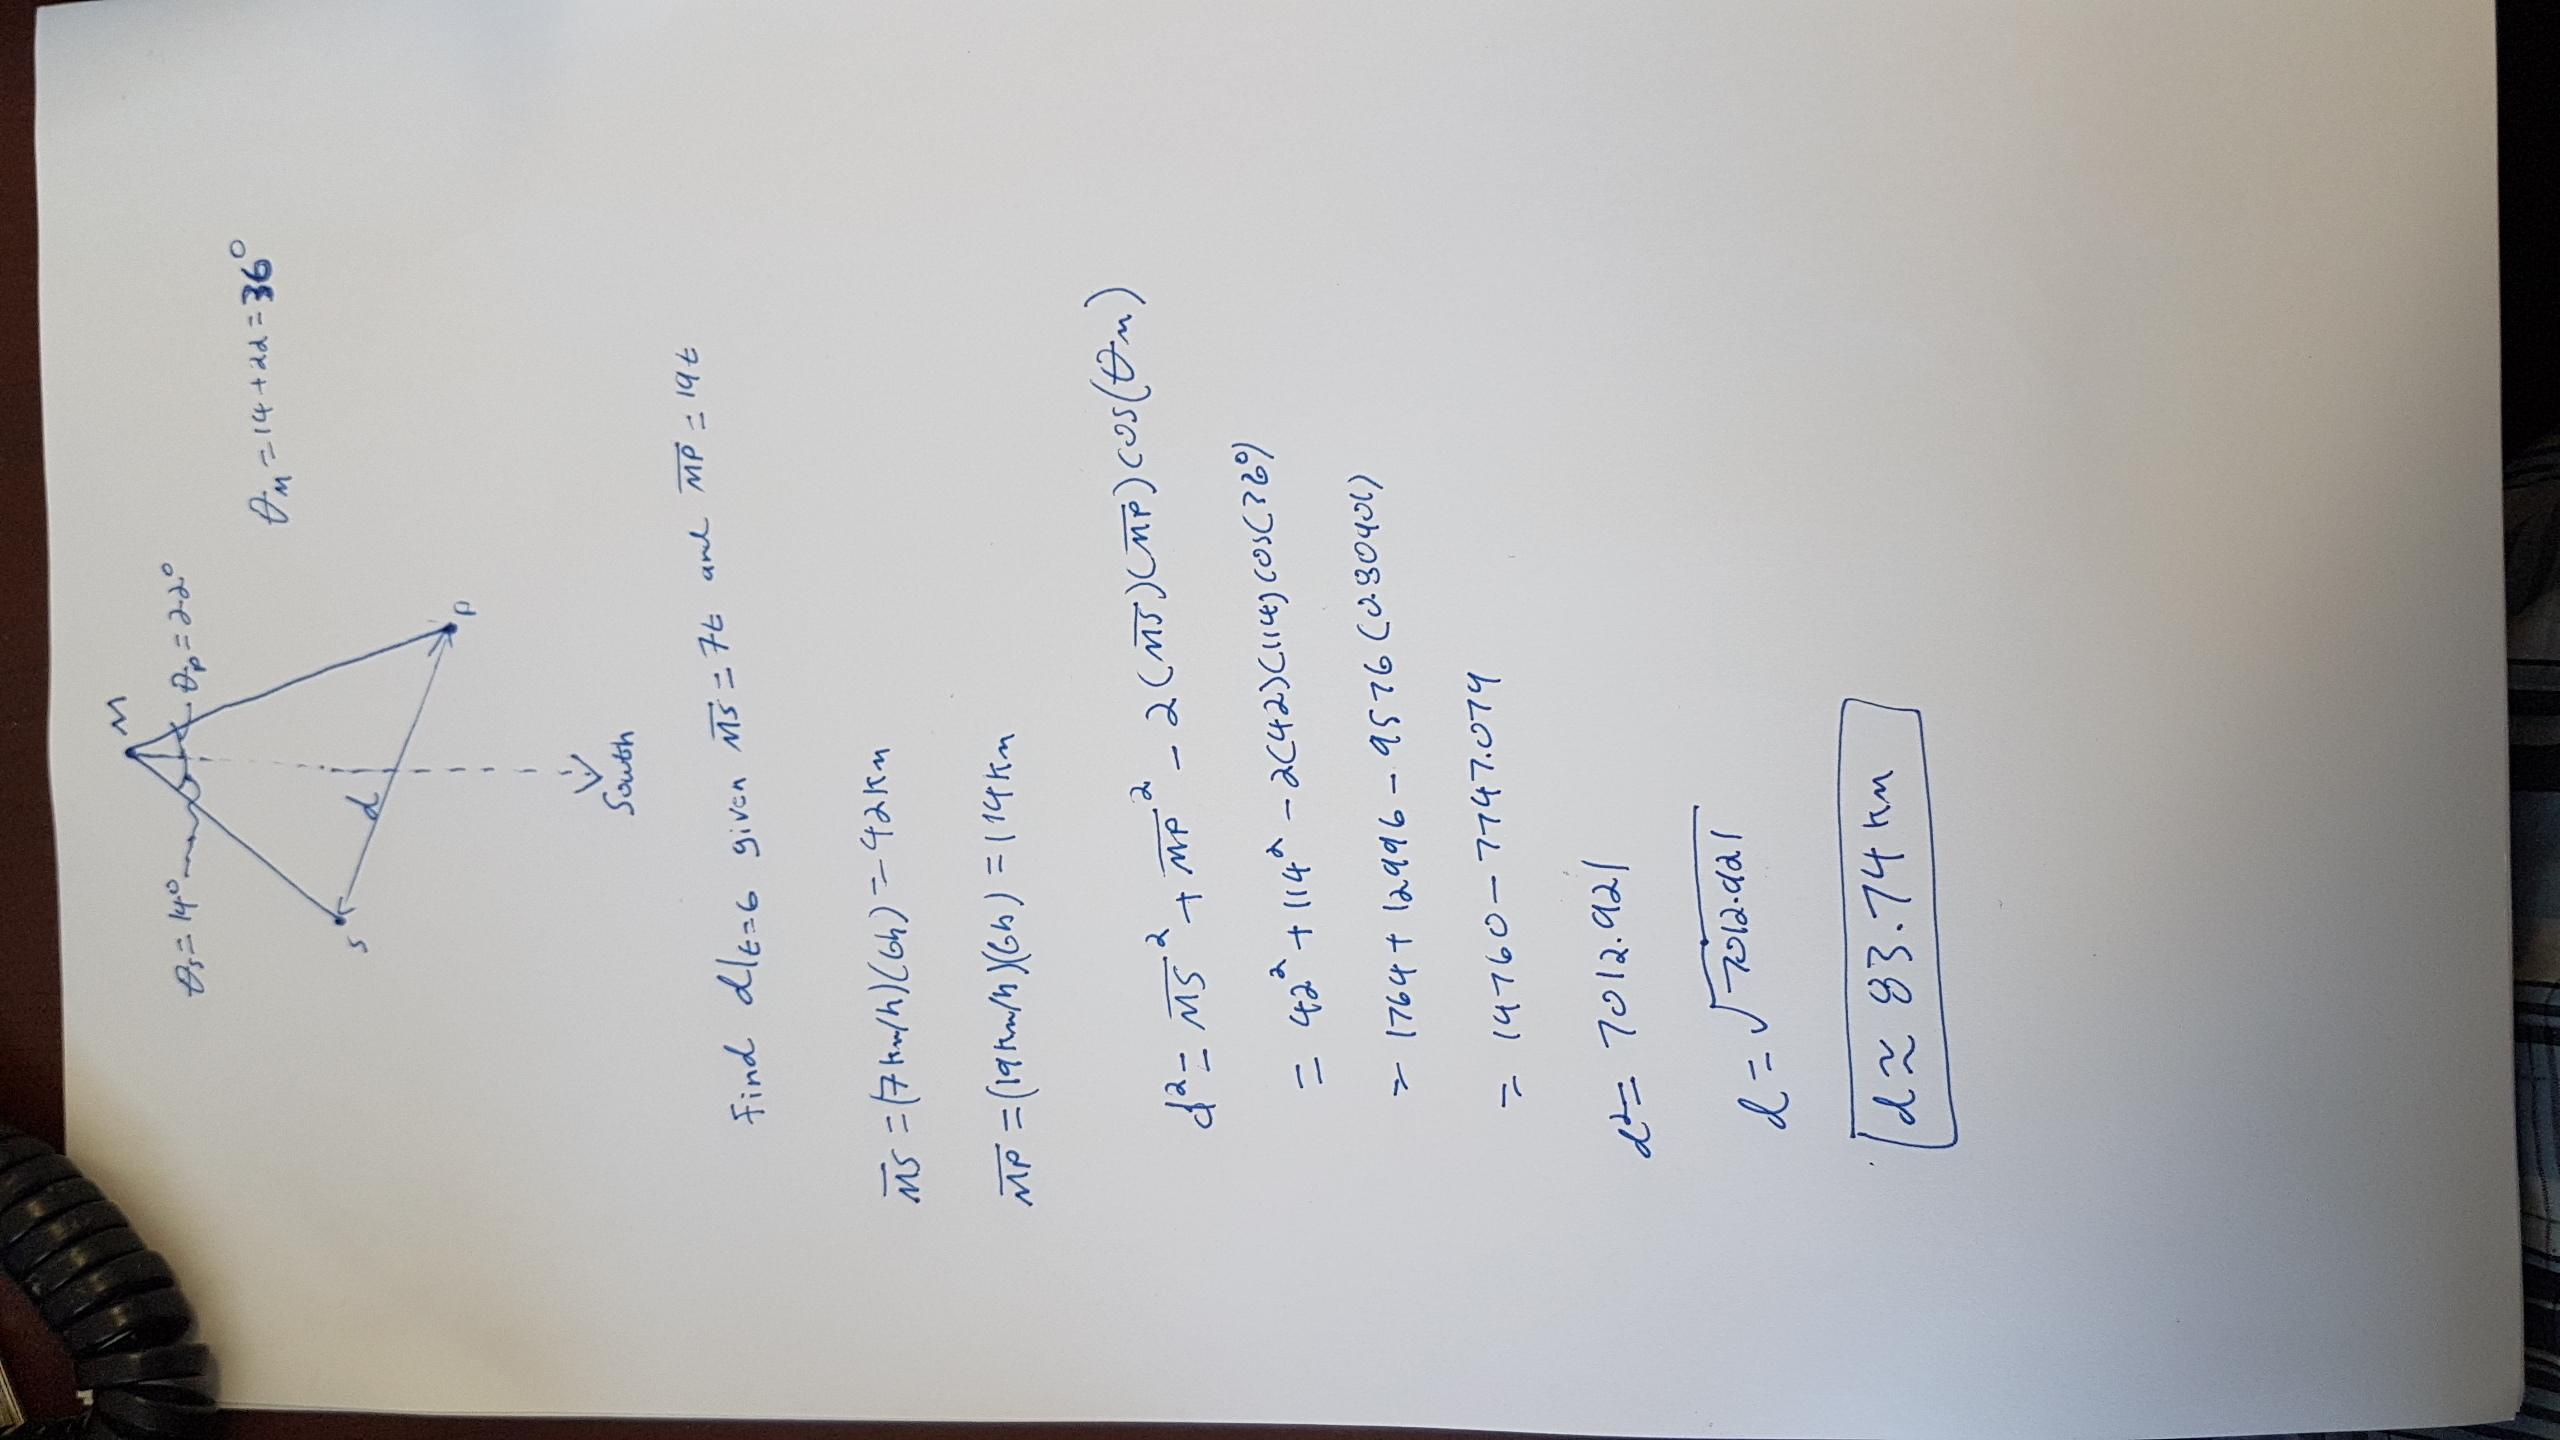 M
θs = 14°
θp = 22°
θM = 14 + 22 = 36°
S
d
P
South
Find d|t=6 given M̅S̅ = 7t and M̅P̅ = 19t
M̅S̅ = (7km/h)(6h) = 42km
M̅P̅ = (19km/h)(6h) = 114km
d² = M̅S̅² + M̅P̅² - 2(M̅S̅)(M̅P̅)cos(θM)
= 42² + 114² - 2(42)(114)cos(36°)
= 1764 + 12996 - 9576(0.80901)
= 14760 - 7747.079
d² = 7012.921
d = √7012.921
d ≈ 83.74km